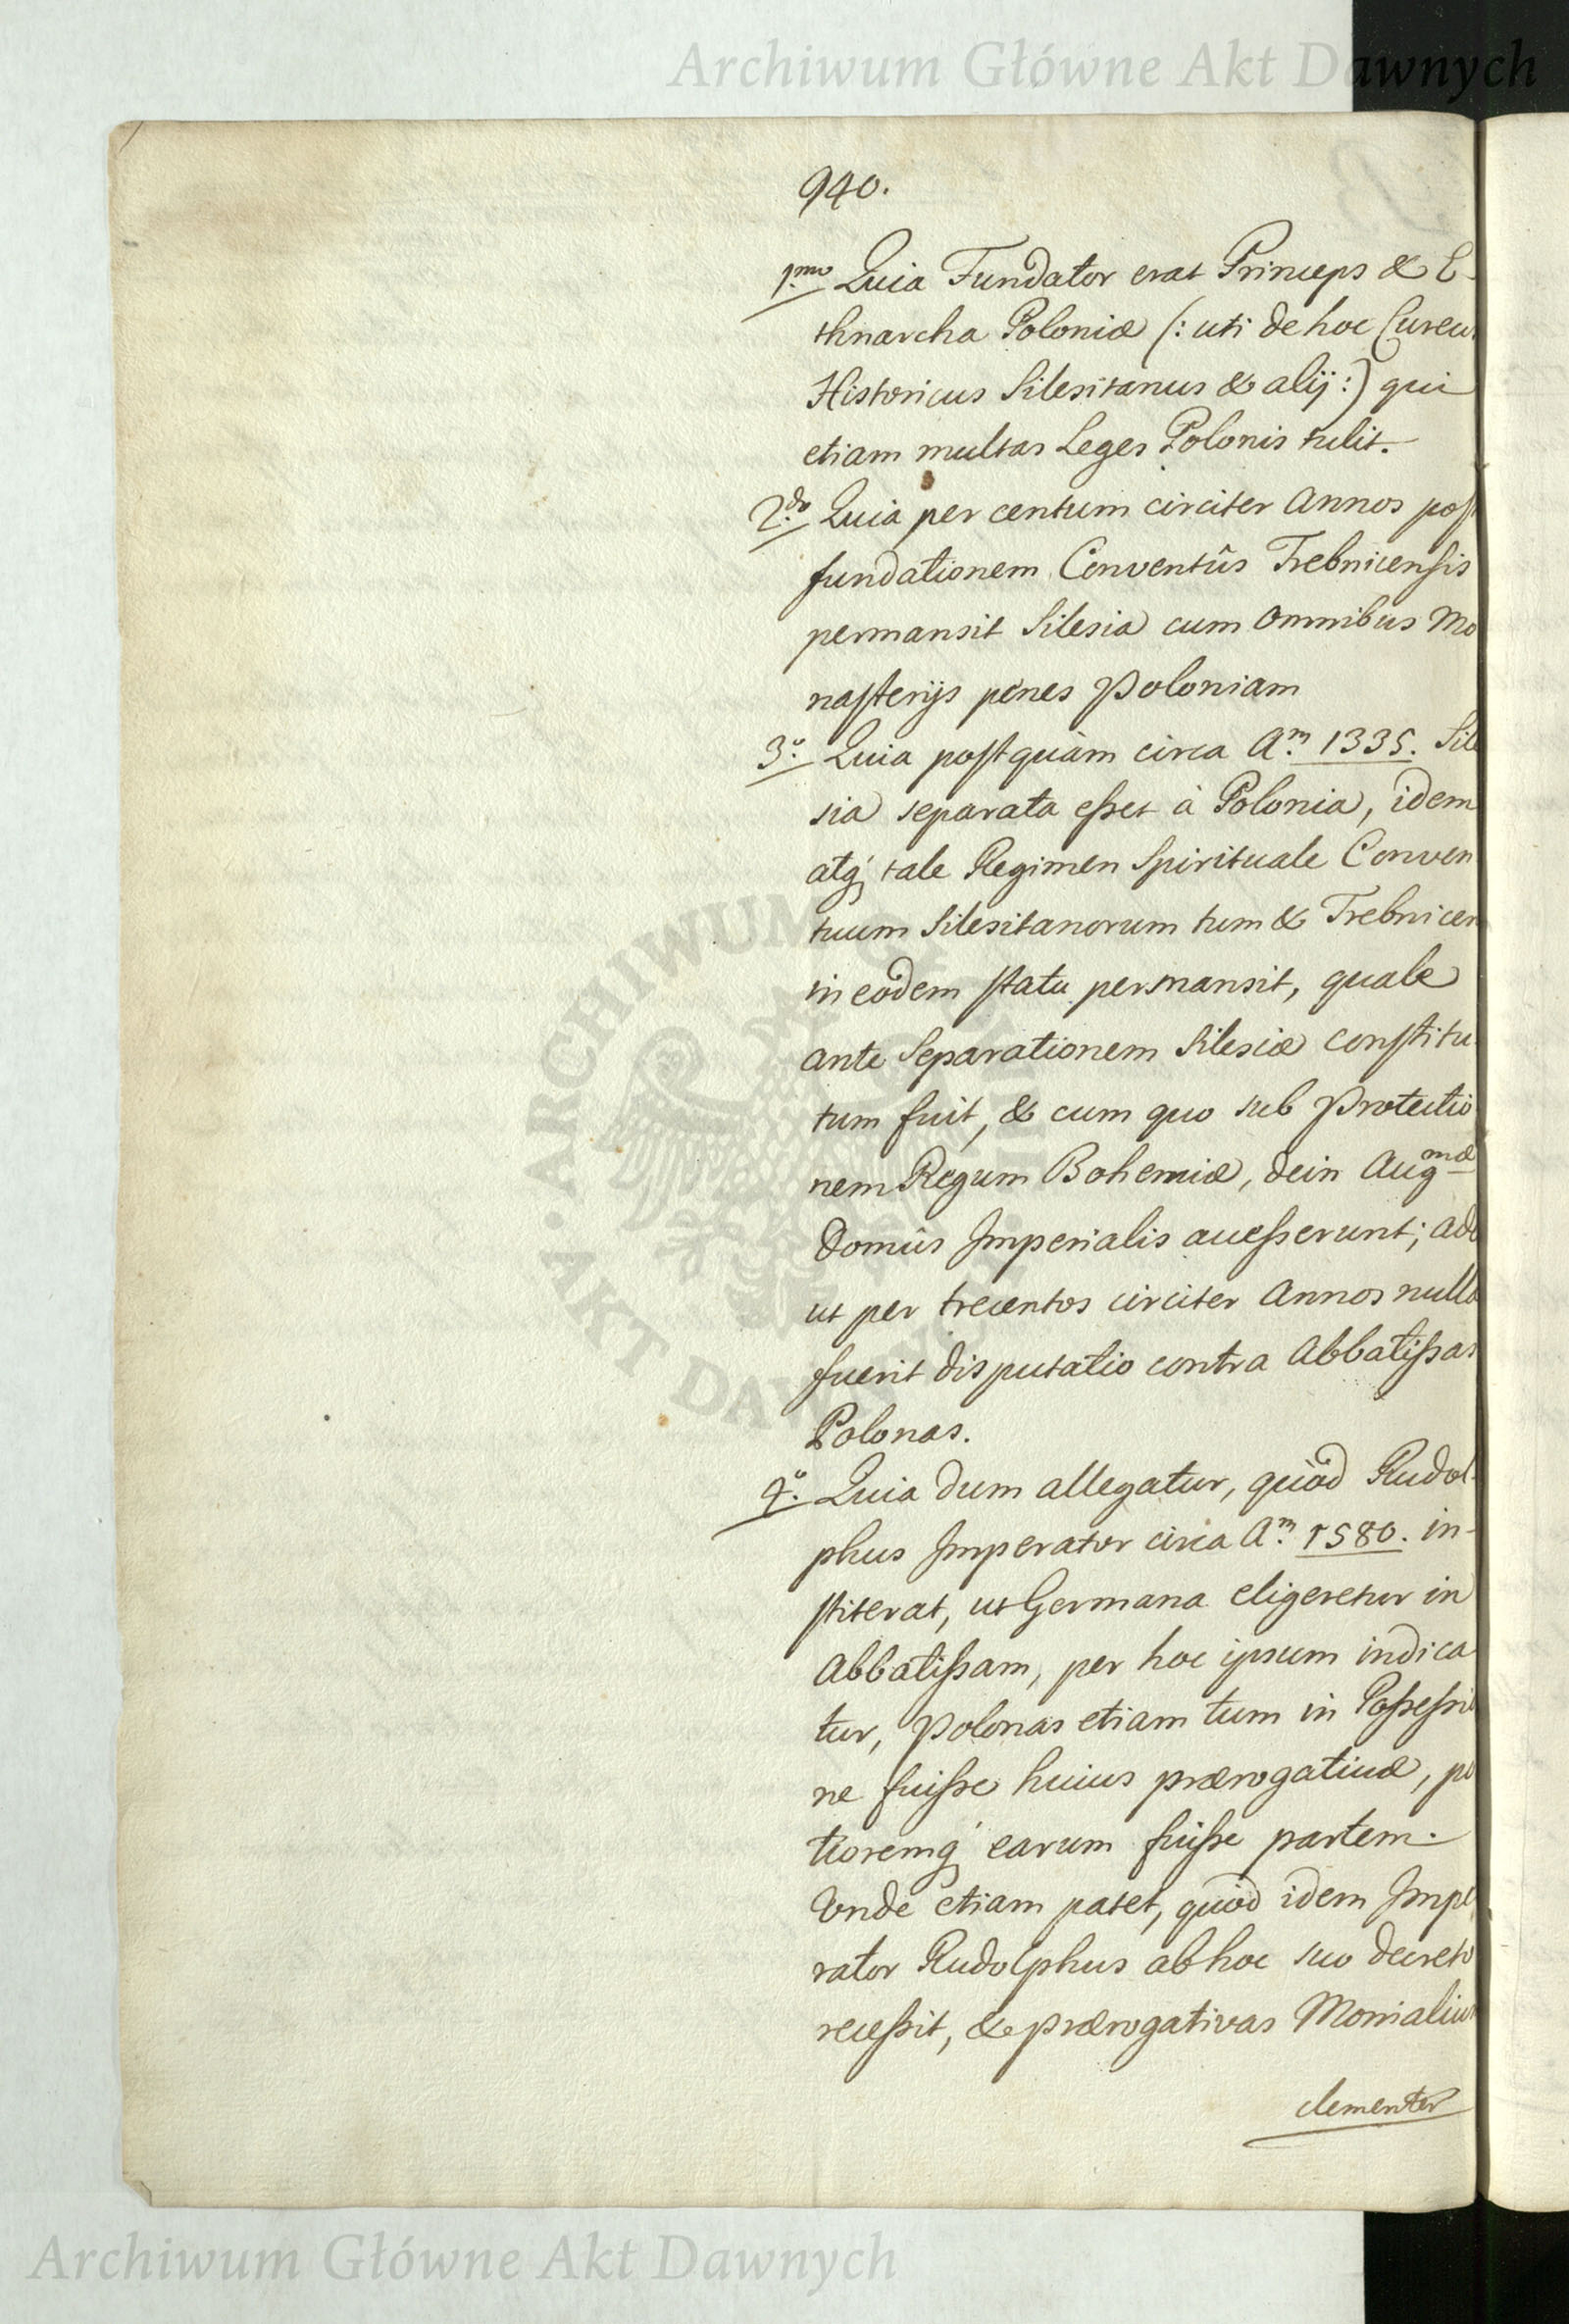 Archiwum Główne Akt Dawnych
940.
1.mo Quia Fundator erat Princeps & E-
thnarcha Poloniæ (: uti de hoc Cureu
Historicus Silesitanus & alij :) qui
etiam multas Leges Polonis tulit.
2.do Quia per centum circiter Annos post
fundationem Conventûs Trebnicensis
permansit Silesia cum Omnibus Mo
nasterijs penes Poloniam
3.o Quia postquàm circa A.m 1335. Sile
sia separata esset à Polonia, idem
atq́ tale Regimen Spirituale Conven
tuum Silesitanorum tum & Trebnicen
in eôdem statu permansit, quale
ante Separationem Silesiæ constitu
tum fuit, & cum quo sub Protectio
nem Regum Bohemiæ, dein Augmæ
Domûs Imperialis accesserunt; adeo
ut per trecentos circiter Annos nulla
fuerit disputatio contra Abbatissas
Polonas.
4.o Quia dum allegatur, quòd Rudol-
phus Imperator circa A.m 1580. in-
stiterat, ut Germana eligeretur in
Abbatissam, per hoc ipsum indica
tur, Polonas etiam tum in Possessio
ne fuisse huius prærogativæ, po
tioremq́ earum fuisse partem.
Unde etiam patet, quòd idem Impe
rator Rudolphus ab hoc suo decreto
recessit, & prærogativas Monialium
clementer
ARCHIWUM GŁÓWNE · AKT DAWNYCH ·
Archiwum Główne Akt Dawnych